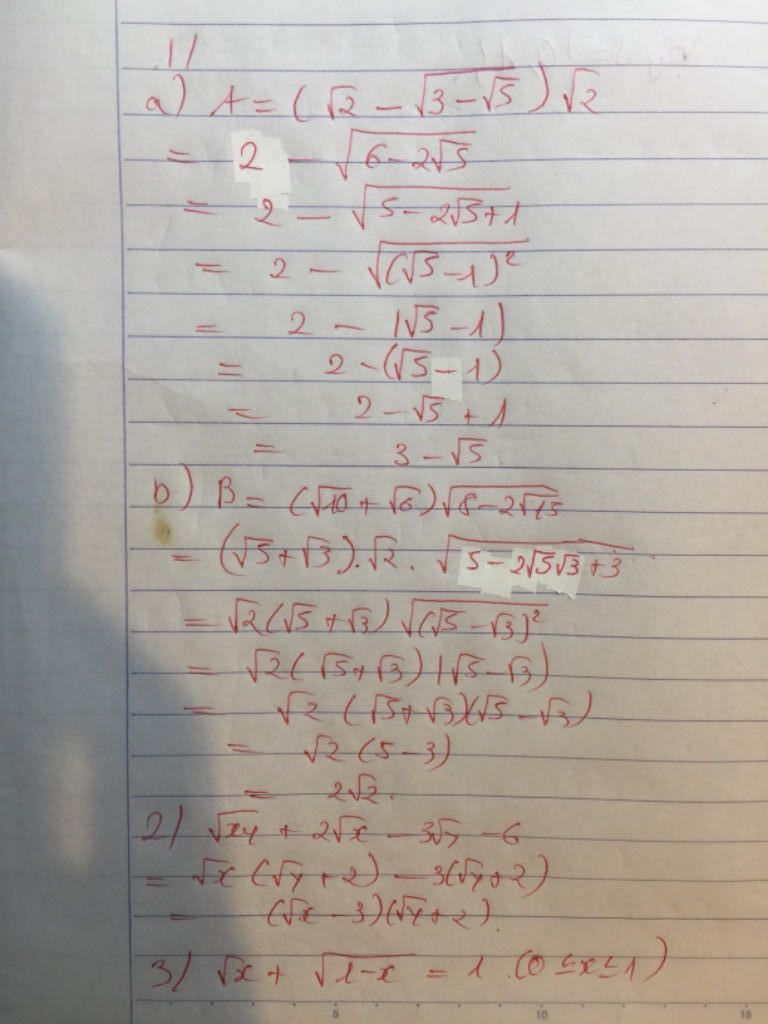 1/
a) A = (√2 − √(3 − √5))√2
= 2 − √(6 − 2√5)
= 2 − √(5 − 2√5 + 1)
= 2 − √((√5 − 1)²)
= 2 − |√5 − 1|
= 2 − (√5 − 1)
= 2 − √5 + 1
= 3 − √5
b) B = (√10 + √6)√(8 − 2√15)
= (√5 + √3).√2.√(5 − 2√5√3 + 3)
= √2(√5 + √3)√((√5 − √3)²)
= √2(√5 + √3)|√5 − √3|
= √2(√5 + √3)(√5 − √3)
= √2(5 − 3)
= 2√2.
2/ √xy + 2√x − 3√y − 6
= √x(√y + 2) − 3(√y + 2)
= (√x − 3)(√y + 2).
3/ √x + √(1 − x) = 1 (0 ≤ x ≤ 1)
5 10 15